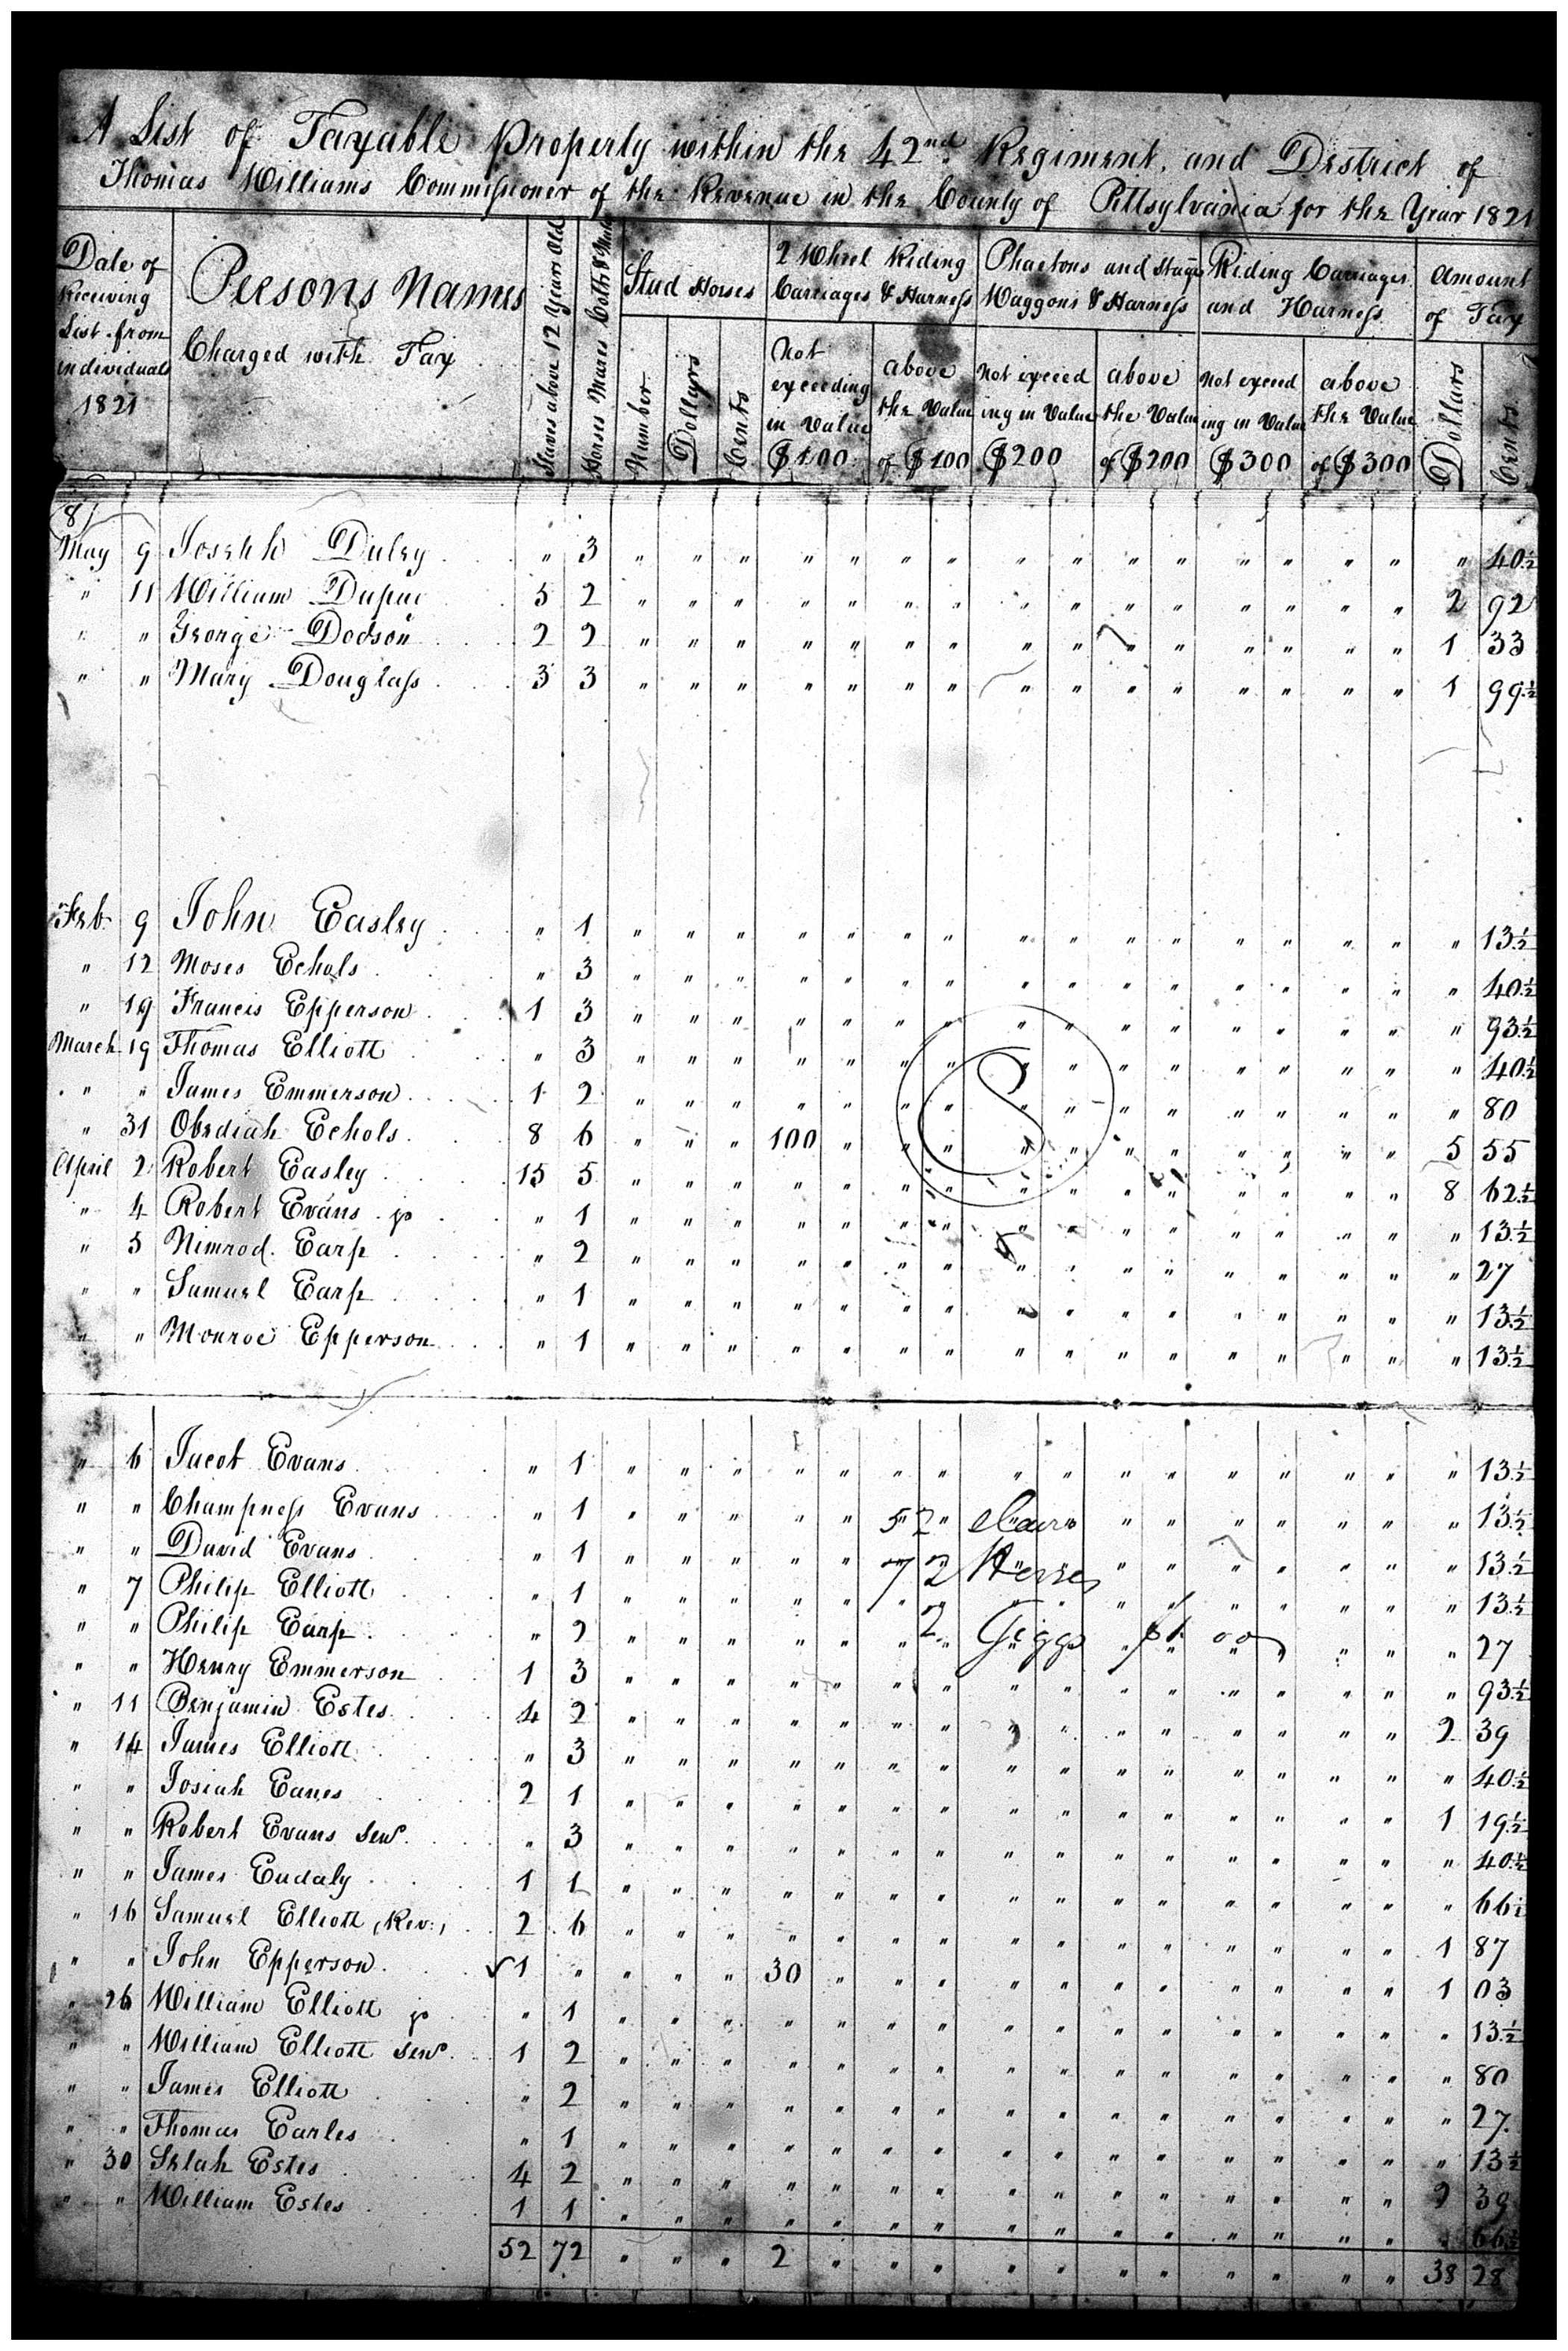 A List of Taxable Property within the 42nd Regiment, and District of
Thomas Williams Commissioner of the Revenue in the County of Pittsylvania for the Year 1821
Date of Receiving List from individuals 1821
Persons Names Charged with Tax
Slaves above 12 Years Old
Horses Mares Colts & Mules
Stud Horses
Number
Dollars
Cents
2 Wheel Riding Carriages & Harness
Not exceeding in Value $100
above the Value of $100
Phaetons and Stage Waggons & Harness
Not exceeding in Value $200
above the Value of $200
Riding Carriages and Harness
Not exceeding in Value $300
above the Value of $300
Amount of Tax
Dollars
Cents
8
May 9 Joseph Duley " 3 " " " " " " " " " " " " " " " " 40½
" 11 William Dupuc 5 2 " " " " " " " " " " " " " " " 2 92
" " George Dodson 2 2 " " " " " " " " " " " " " " " 1 33
" " Mary Douglass 3 3 " " " " " " " " " " " " " " " 1 99½
Feb. 9 John Easley " 1 " " " " " " " " " " " " " " " " 13½
" 12 Moses Echols " 3 " " " " " " " " " " " " " " " " 40½
" 19 Francis Epperson 1 3 " " " " " " " " " " " " " " " " 93½
March 19 Thomas Elliott " 3 " " " " " " " " " " " " " " " " 40½
" " James Emmerson 1 2 " " " " " " " " " " " " " " " " 80
" 31 Obediah Echols 8 6 " " " 100 " " " " " " " " " " " 5 55
April 2 Robert Easley 15 5 " " " " " " " " " " " " " " " 8 62½
" 4 Robert Evans jr " 1 " " " " " " " " " " " " " " " " 13½
" 5 Nimrod Earp " 2 " " " " " " " " " " " " " " " " 27
" " Samuel Earp " 1 " " " " " " " " " " " " " " " " 13½
" " Monroe Epperson " 1 " " " " " " " " " " " " " " " " 13½
" 6 Jacob Evans " 1 " " " " " " " " " " " " " " " " 13½
" " Champness Evans " 1 " " " " " " " " " " " " " " " " 13½
52
" " David Evans " 1 " " " " " " " " " " " " " " " " 13½
72 Horses
" 7 Philip Elliott " 1 " " " " " " " " " " " " " " " " 13½
" " Philip Earp " 2 " " " " " " " " " " " " " " " " 27
2 Giggs $1.00
" " Henry Emmerson 1 3 " " " " " " " " " " " " " " " " 93½
" 11 Benjamin Estes 4 2 " " " " " " " " " " " " " " " 2 39
" 14 James Elliott " 3 " " " " " " " " " " " " " " " " 40½
" " Josiah Eanes 2 1 " " " " " " " " " " " " " " " 1 19½
" " Robert Evans Senr. " 3 " " " " " " " " " " " " " " " " 40½
" " James Eudaly 1 1 " " " " " " " " " " " " " " " " 66½
" 16 Samuel Elliott (Rev:) 2 6 " " " " " " " " " " " " " " " 1 87
" " John Epperson 1 " " " " 30 " " " " " " " " " " " 1 03
" 26 William Elliott jr " 1 " " " " " " " " " " " " " " " " 13½
" " William Elliott Senr. 1 2 " " " " " " " " " " " " " " " " 80
" " James Elliott " 2 " " " " " " " " " " " " " " " " 27
" " Thomas Earles " 1 " " " " " " " " " " " " " " " " 13½
" 30 Selah Estes 4 2 " " " " " " " " " " " " " " " 2 39
" " William Estes 1 1 " " " " " " " " " " " " " " " " 66½
52 72 " " " 2 " " " " " " " " " " " 38 28